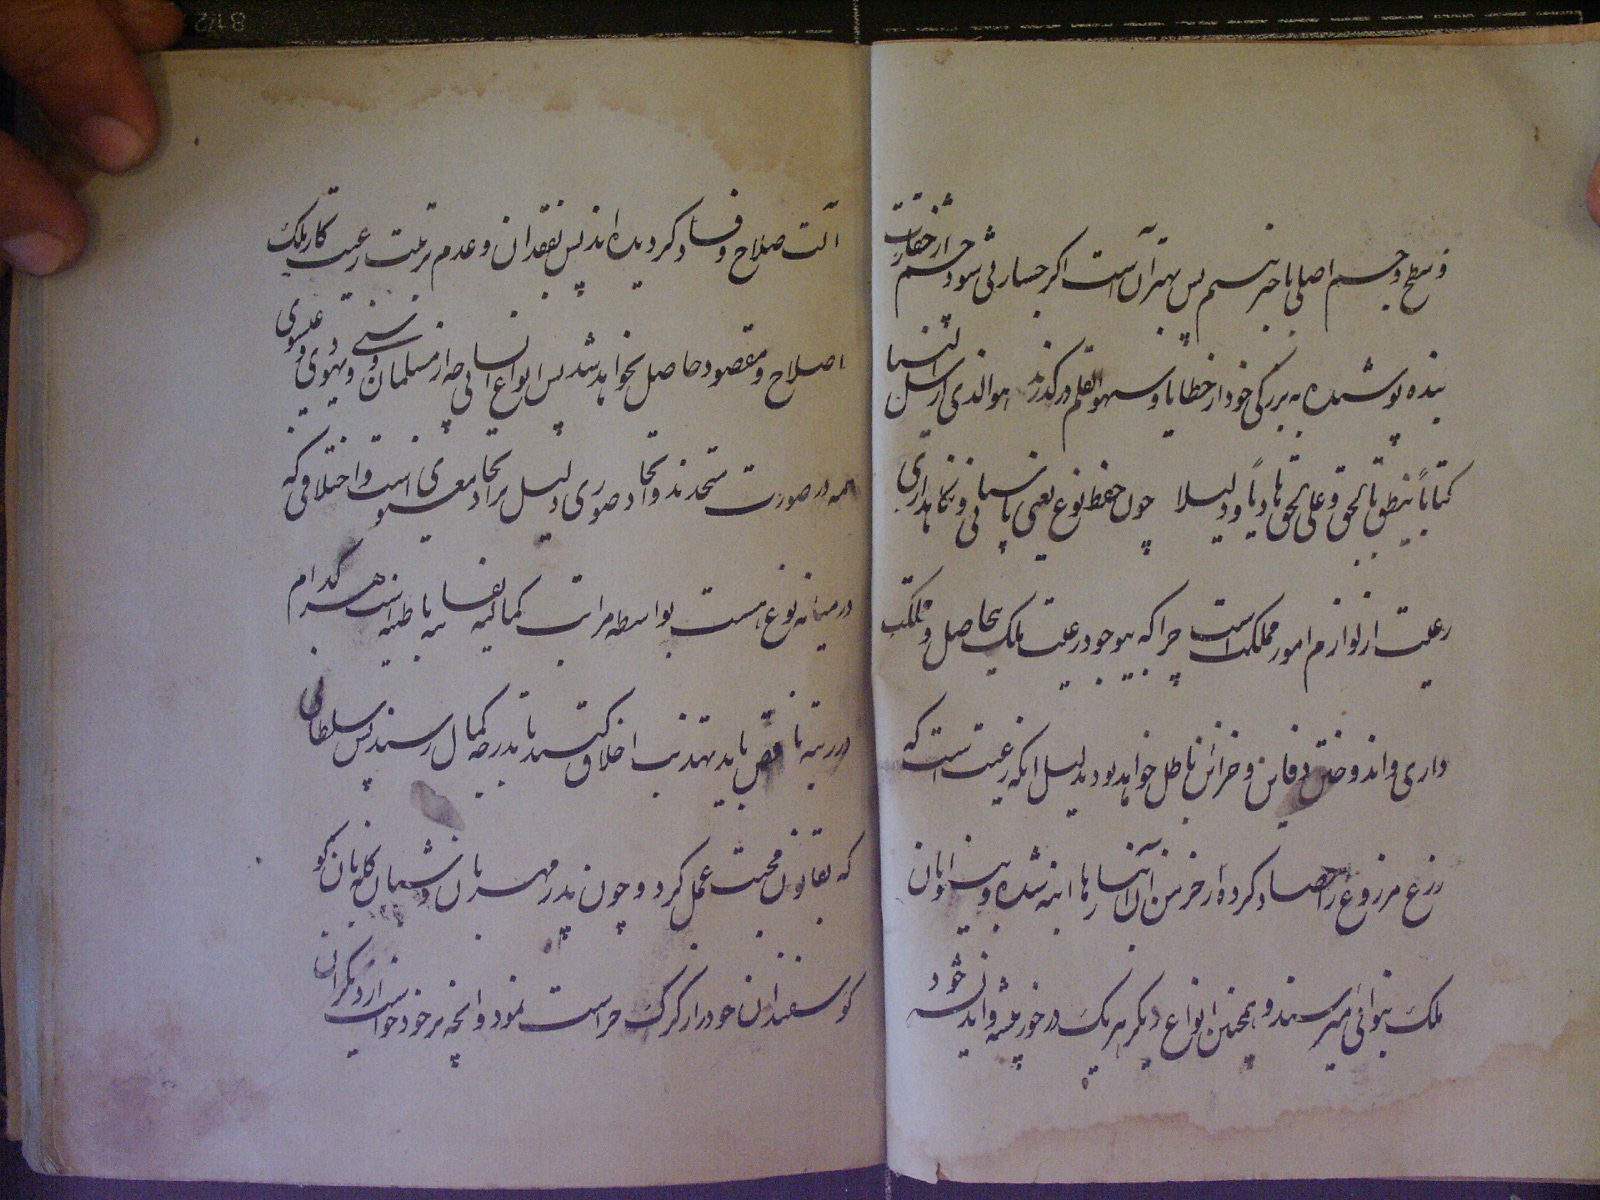 و سطح و جسم اصلی با خبر نیسم پس بهتر آن است اگر جسارتی شود چشم از حقارت
بنده پوشیده به بزرگی خود از خطایا و سهو القلم درگذرند هو الذی ارسل الینا
کتاباً ینطق بالحق و علی الحق هادیاً و دلیلا چون حفظ نوع یعنی پاسبانی و نگاهداری
رعیت از لوازم امور مملکت است چرا که بیوجود رعیت ملک بیحاصل و مملکت
داری و اندوختن دفاین و خزائن باطل خواهد بود بدلیل انکه رعیت است که
زرع مزروع را حصاد کرده از خرمن آن انبارها انبه شده و بینوایان
ملک بنوائی میرسند و همچنین انواع دیگر هر یک در خور پیشه و اندیشه خود
آلت صلاح و فساد گردیده‌اند پس بفقدان و عدم تربیت رعیت کار ملک
اصلاح و مقصود حاصل نخواهد شد پس انواع انسانی چه از مسلمان و سنی و یهودی و عیسوی
همه در صورت متحدند و اتحاد صوری دلیل بر اتحاد معنوی است و اختلافی که
در میانه نوع هست بواسطه مراتب کمالیه نفسانیه باطنیه است هر کدام
در رتبه ناقص باید بتهذیب اخلاق کوشیده تا بدرجه کمال رسند پس سلطان
که بقانون محبت عمل کرد و چون پدر مهربان و شبان گله‌بان کو
کوسفندان خود را از کرک حراست نمود و انچه بر خود خواست از دیگران